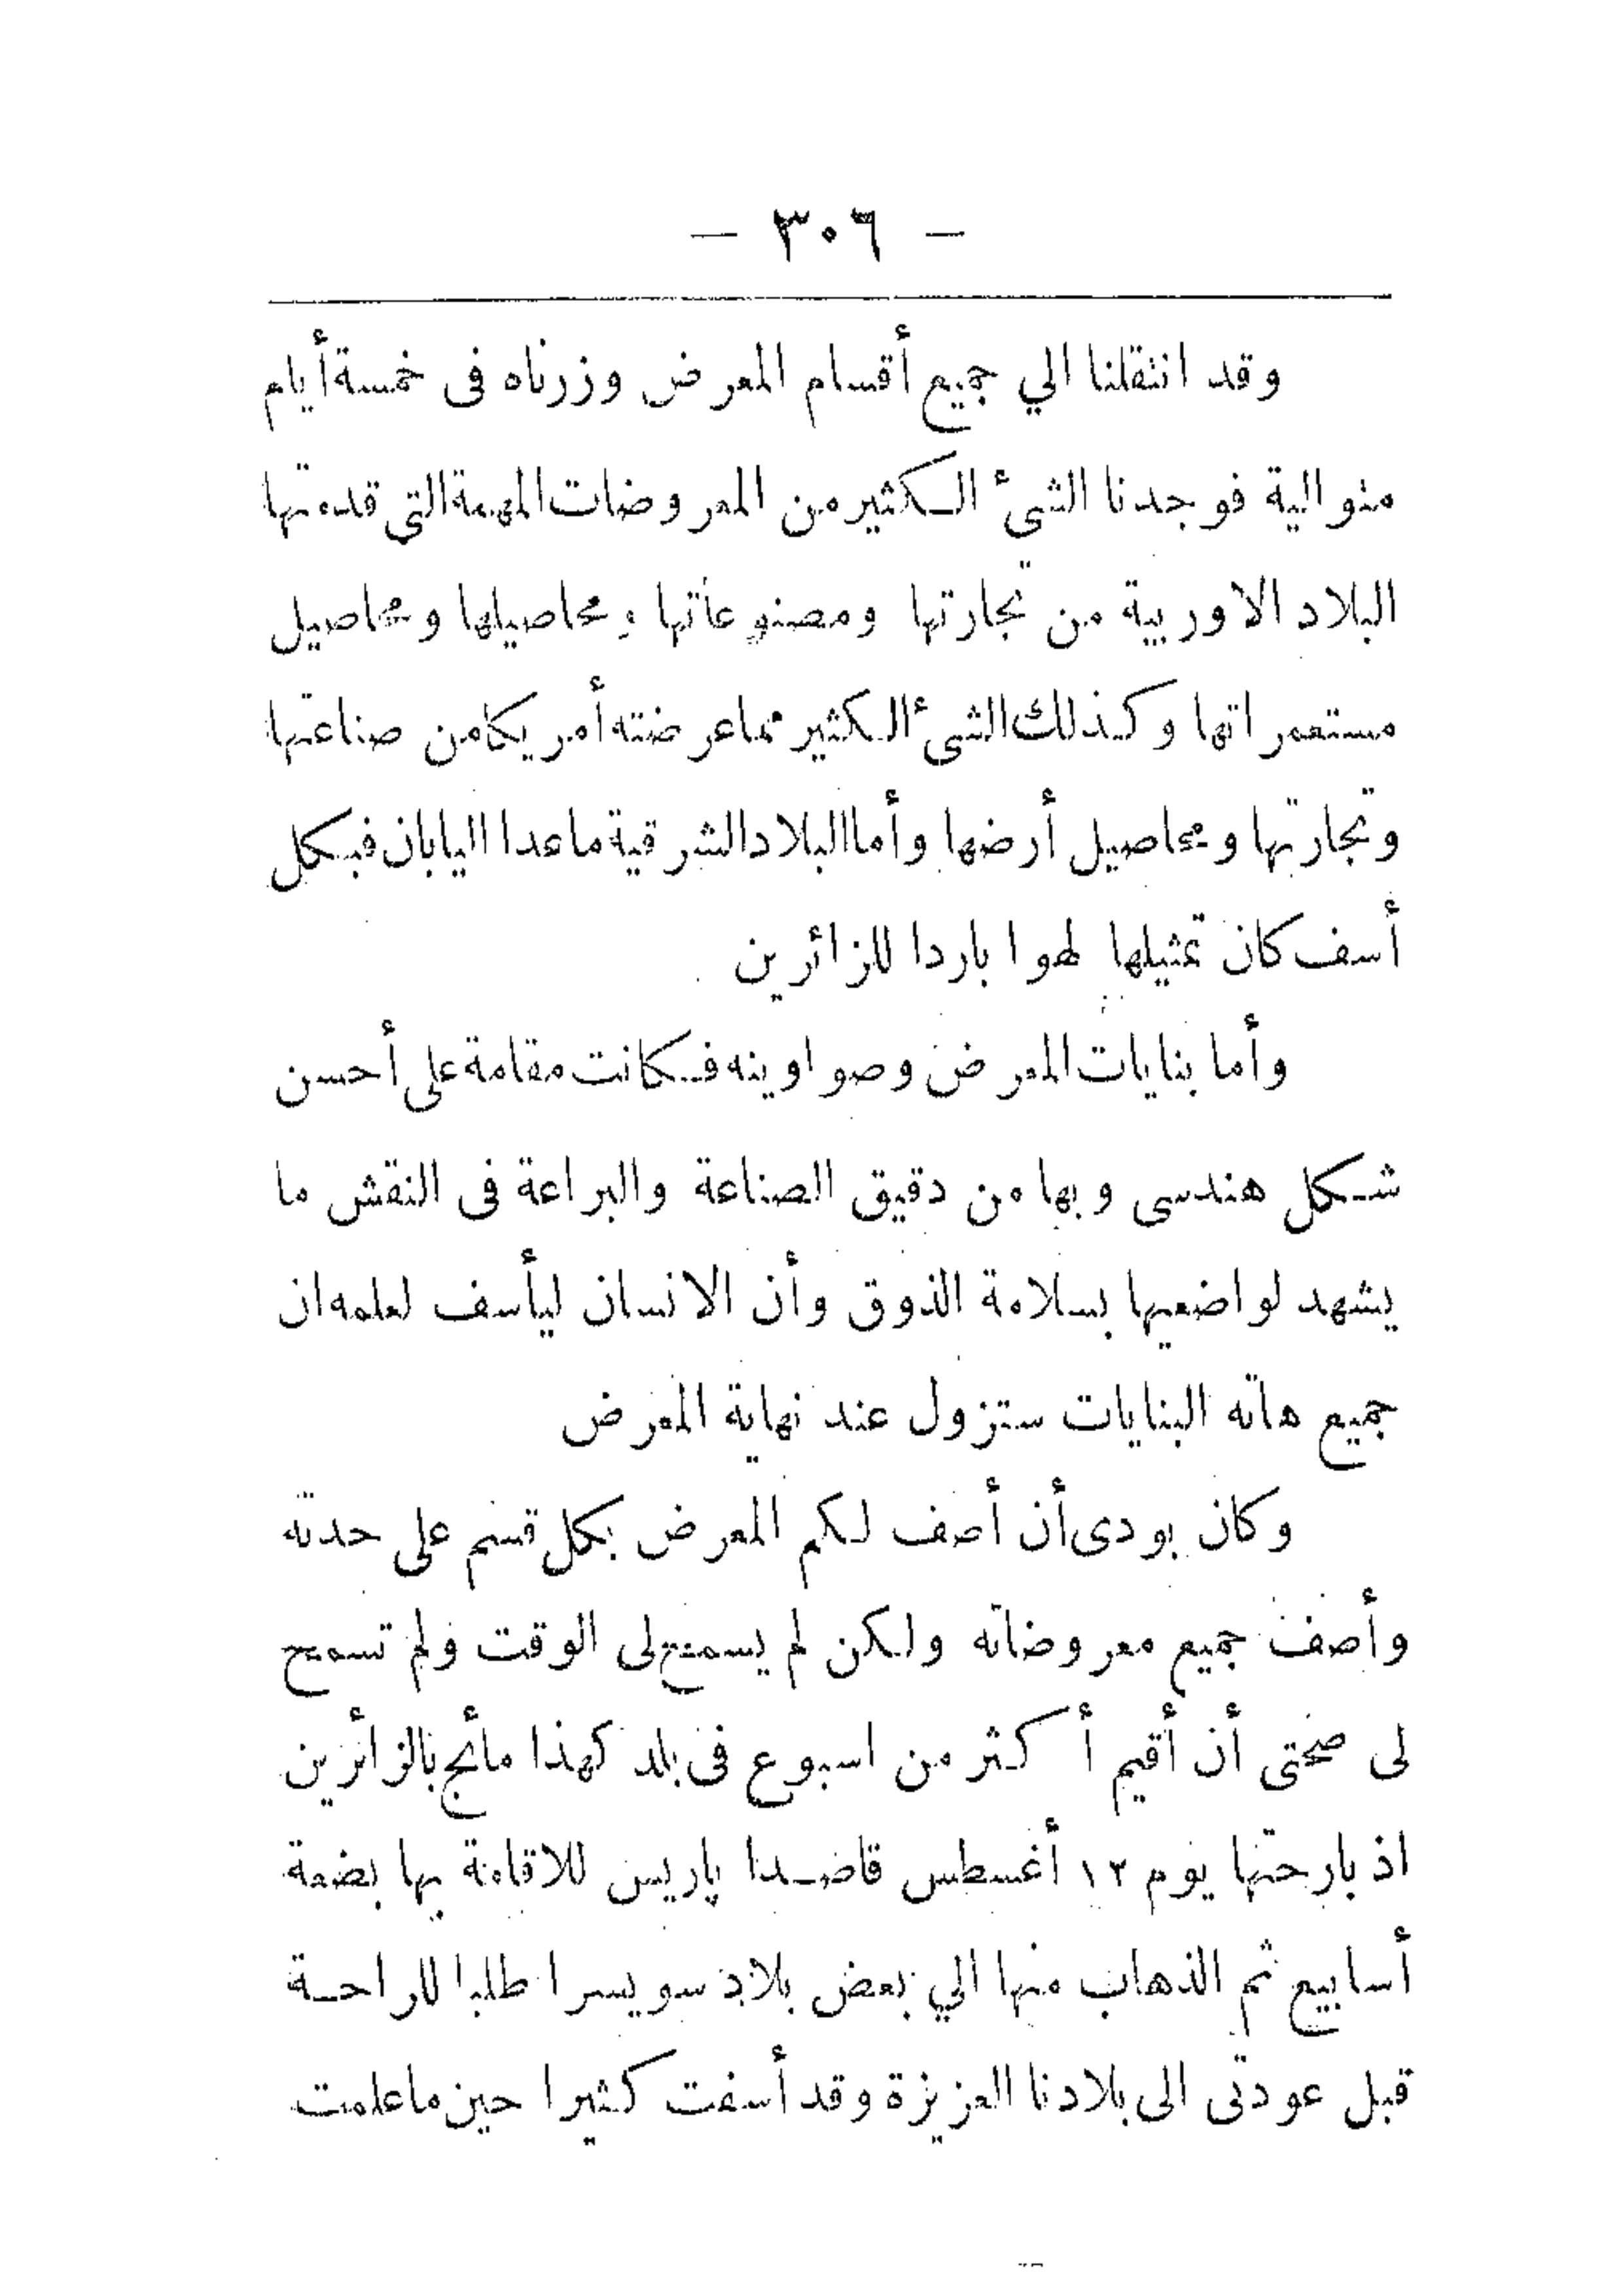 — ٣٠٦ —
وقد انتقلنا الي جميع أقسام المعرض وزرناه فى خمسة أيام
متوالية فوجدنا الشئ الكثير من المعروضات المهمة التي قدمتها
البلاد الاوربية من تجارتها ومصنوعاتها ومحاصيلها ومحاصيل
مستعمراتها وكذلك الشئ الكثير مما عرضته أمريكا من صناعتها
وتجارتها ومحاصيل أرضها وأما البلاد الشرقية ماعدا اليابان فبكل
أسف كان تمثيلها لهوا باردا للزائرين
وأما بنايات المعرض وصواوينه فكانت مقامة على أحسن
شكل هندسى وبها من دقيق الصناعة والبراعة فى النقش ما
يشهد لواضعيها بسلامة الذوق وأن الانسان ليأسف لعلمه ان
جميع هاته البنايات ستزول عند نهاية المعرض
وكان بودى أن أصف لكم المعرض بكل قسم على حدته
وأصف جميع معروضاته ولكن لم يسمح لى الوقت ولم تسمح
لى صحتى أن أقيم أكثر من اسبوع فى بلد كهذا مائج بالزائرين
اذ بارحتها يوم ١٢ أغسطس قاصدا پاريس للاقامة بها بضعة
أسابيع ثم الذهاب منها الي بعض بلاد سويسرا طلبا للراحة
قبل عودتى الى بلادنا العزيزة وقد أسفت كثيرا حين ما علمت